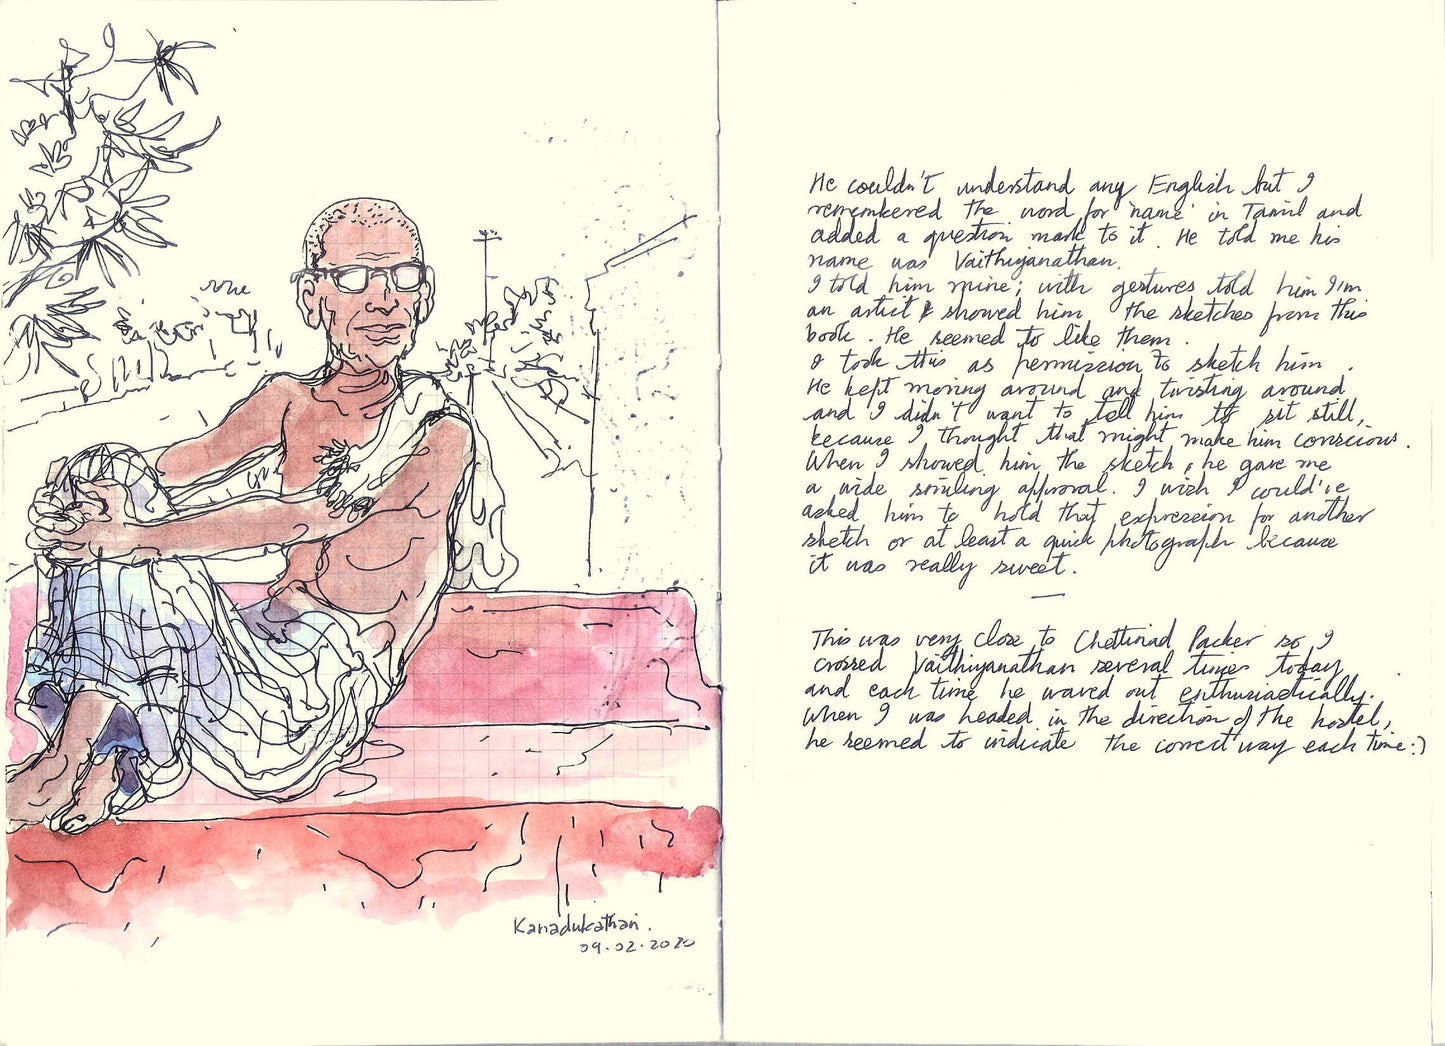 Kanadukathan.
09.02.2020
He couldn't understand any English but I
remembered the word for 'name' in Tamil and
added a question mark to it. He told me his
name was Vaithiyanathan.
I told him mine; with gestures told him I'm
an artist & showed him the sketches from this
book. He seemed to like them.
I took this as permission to sketch him.
He kept moving around and twisting around
and I didn't want to tell him to sit still,
because I thought that might make him conscious.
When I showed him the sketch, he gave me
a wide smiling approval. I wish I could've
asked him to hold that expression for another
sketch or at least a quick photograph because
it was really sweet.
—
This was very close to Chettinad Packer so I
crossed Vaithiyanathan several times today
and each time he waved out enthusiastically.
When I was headed in the direction of the hostel,
he seemed to indicate the correct way each time:)